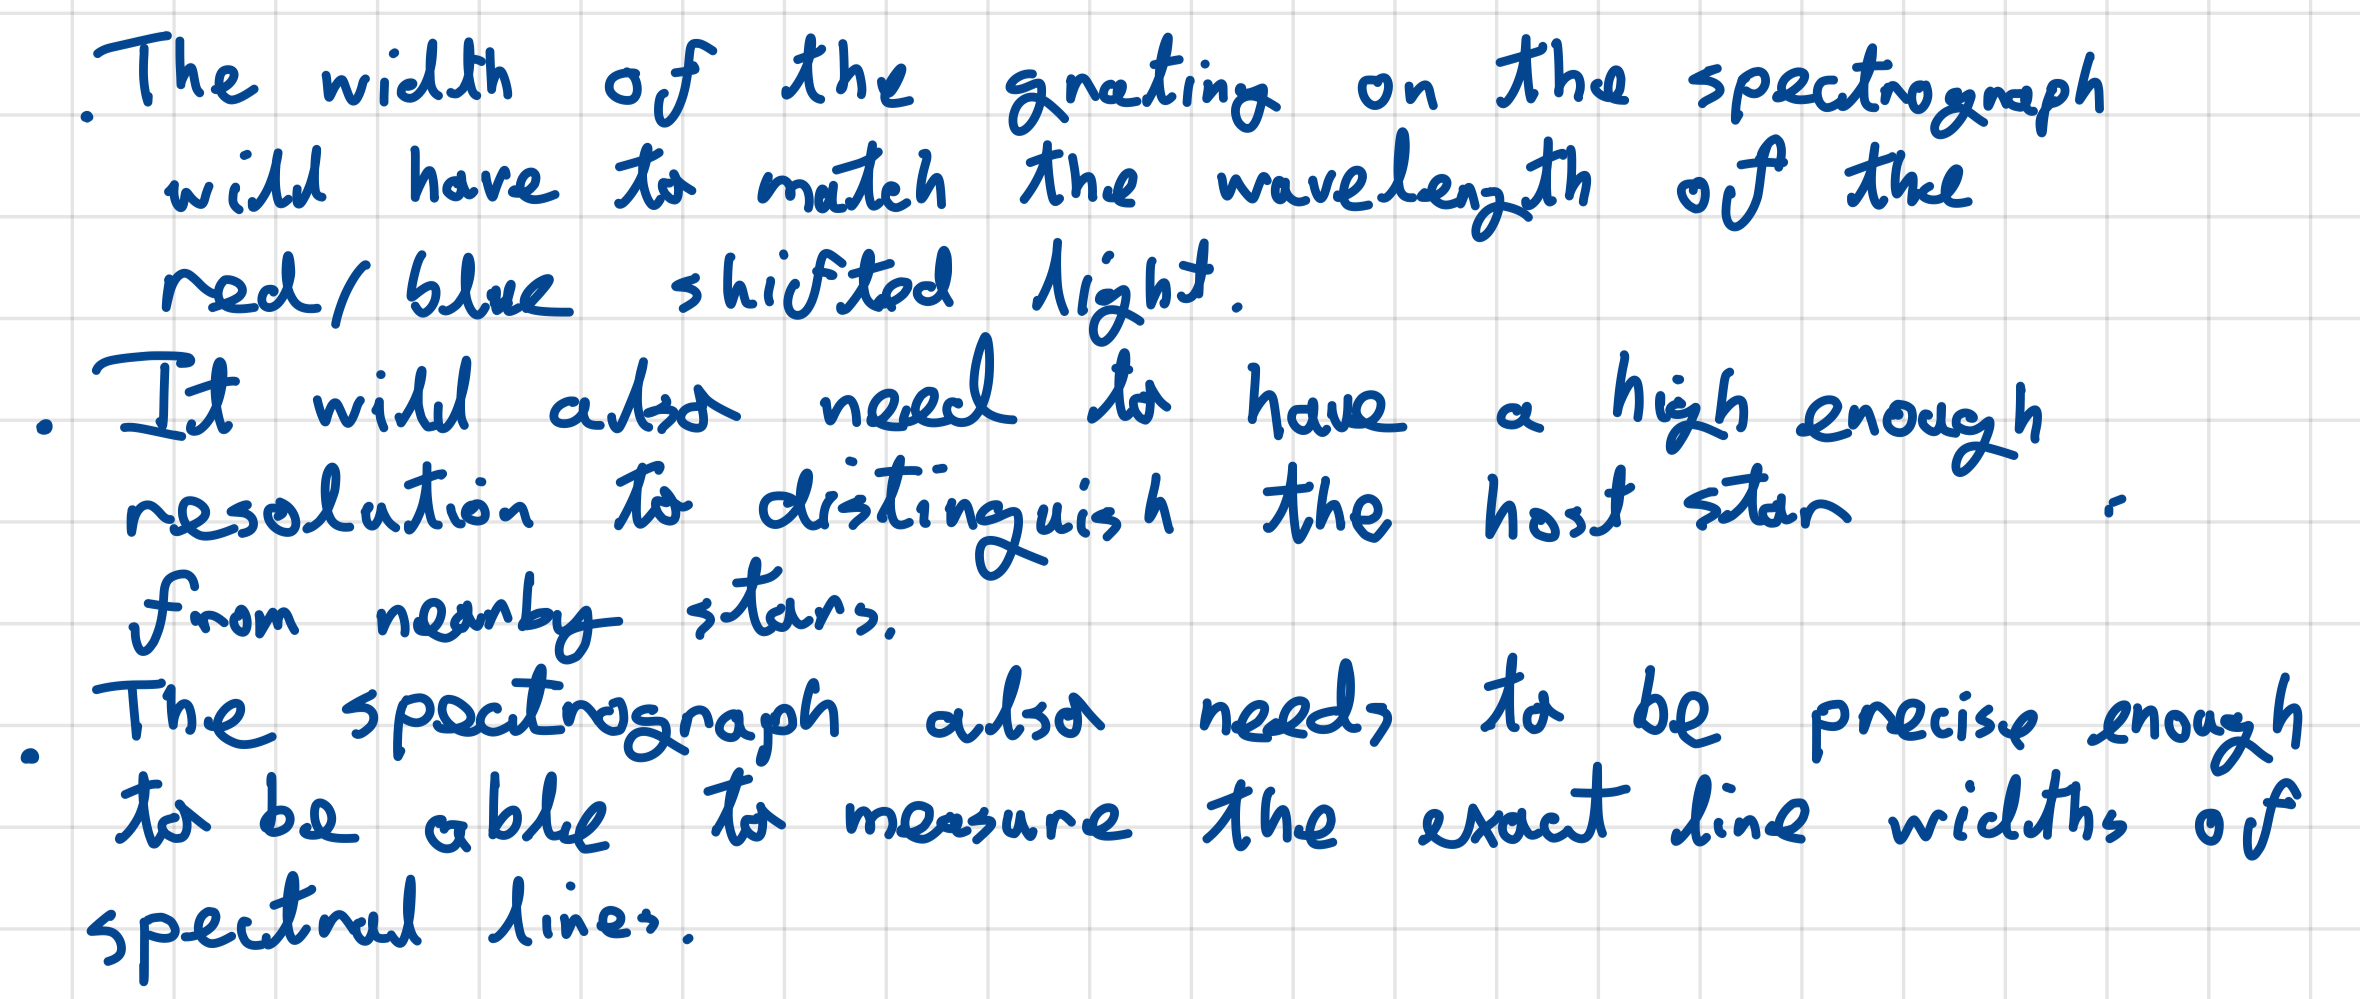 . The width of the grating on the spectrograph
will have to match the wavelength of the
red/blue shifted light.
. It will also need to have a high enough
resolution to distinguish the host star
from nearby stars.
. The spectrograph also needs to be precise enough
to be able to measure the exact line widths of
spectral lines.